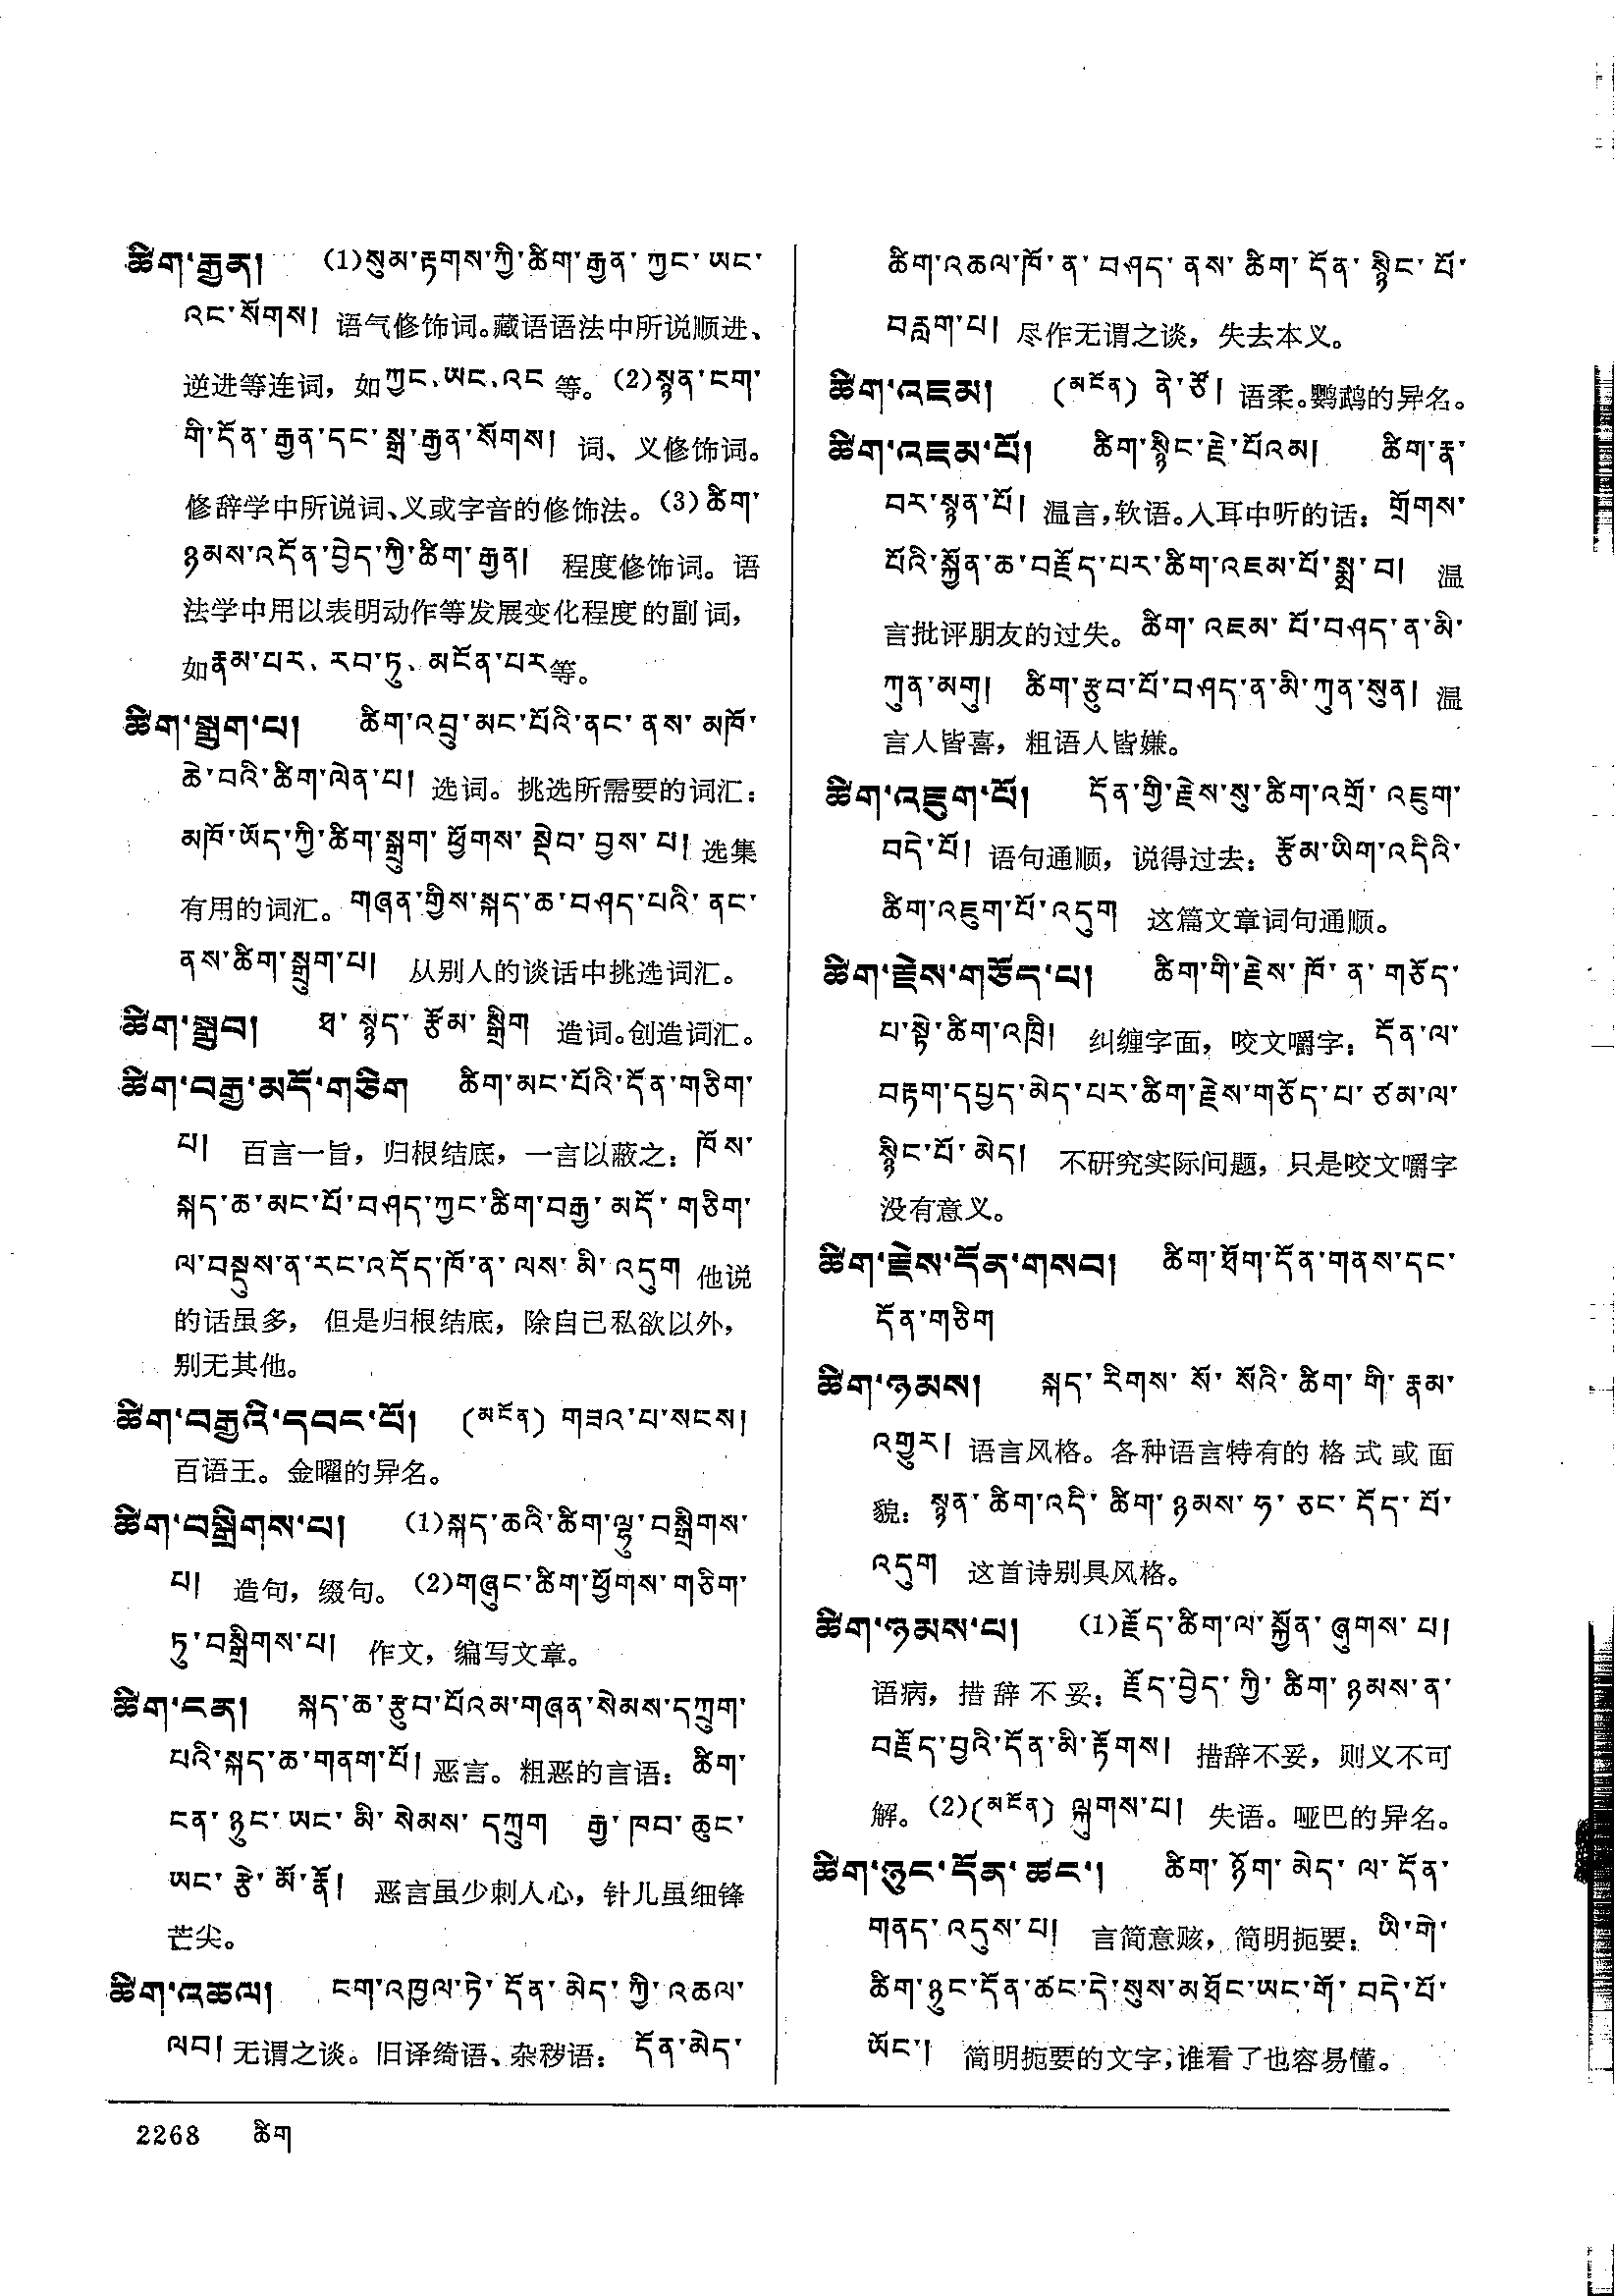 ཚིག་རྒྱན། (1)སུམ་རྟགས་ཀྱི་ཚིག་རྒྱན་ ཀྱང་ ཡང་
འང་སོགས། 语气修饰词。藏语语法中所说顺进、
逆进等连词，如ཀྱང、ཡང、འང 等。(2)སྙན་ངག་
གི་དོན་རྒྱན་དང་སྒྲ་རྒྱན་སོགས། 词、义修饰词。
修辞学中所说词、义或字音的修饰法。(3)ཚིག་
ཉམས་འདོན་བྱེད་ཀྱི་ཚིག་རྒྱན། 程度修饰词。语
法学中用以表明动作等发展变化程度的副词，
如རྣམ་པར、རབ་ཏུ、མངོན་པར等。
ཚིག་སྒྲུག་པ། ཚིག་འབྲུ་མང་པོའི་ནང་ནས་མཁོ་
ཆེ་བའི་ཚིག་ལེན་པ། 选词。挑选所需要的词汇：
མཁོ་ཡོད་ཀྱི་ཚིག་སྒྲུག་ ཕྱོགས་ སྡེབ་ བྱས་ པ། 选集
有用的词汇。གཞན་གྱིས་སྐད་ཆ་བཤད་པའི་ ནང་
ནས་ཚིག་སྒྲུག་པ། 从别人的谈话中挑选词汇。
ཚིག་སྒྲུབ། ཐ་ སྙད་ རྩོམ་ སྒྲིག 造词。创造词汇。
ཚིག་བརྒྱ་མདོ་གཅིག ཚིག་མང་པོའི་དོན་གཅིག་
པ། 百言一旨，归根结底，一言以蔽之：ཁོས་
སྐད་ཆ་མང་པོ་བཤད་ཀྱང་ཚིག་བརྒྱ་ མདོ་ གཅིག་
ལ་བསྡུས་ན་རང་འདོད་ཁོ་ན་ ལས་ མི་ འདུག 他说
的话虽多， 但是归根结底，除自己私欲以外，
别无其他。
ཚིག་བརྒྱའི་དབང་པོ། (མངོན) གཟའ་པ་སངས།
百语王。金曜的异名。
ཚིག་བསྒྲིགས་པ། (1)སྐད་ཆའི་ཚིག་ལྷུ་བསྒྲིགས་
པ། 造句，缀句。(2)གཞུང་ཚིག་ཕྱོགས་གཅིག་
ཏུ་བསྒྲིགས་པ། 作文，编写文章。
ཚིག་ངན། སྐད་ཆ་རྩུབ་པོའམ་གཞན་སེམས་དཀྲུག་
པའི་སྐད་ཆ་གནག་པོ། 恶言。粗恶的言语：ཚིག་
ངན་ ཉུང་ ཡང་ མི་ སེམས་ དཀྲུག རྒྱ་ ཁབ་ ཆུང་
ཡང་ རྩེ་ མོ་ རྣོ། 恶言虽少刺人心，针儿虽细锋
芒尖。
ཚིག་འཆལ། ངག་འཁྱལ་ཏེ་ དོན་ མེད་ ཀྱི་ འཆལ་
ལབ། 无谓之谈。旧译绮语、杂秽语：དོན་མེད་
ཚིག་འཆལ་ཁོ་ན་ བཤད་ ནས་ ཚིག་ དོན་ སྙིང་ པོ་
བརླག་པ། 尽作无谓之谈，失去本义。
ཚིག་འཇམ། (མངོན) ནེ་ཙོ། 语柔。鹦鹉的异名。
ཚིག་འཇམ་པོ། ཚིག་སྙིང་རྗེ་པོའམ། ཚིག་རྣ་
བར་སྙན་པོ། 温言，软语。入耳中听的话：གྲོགས་
པོའི་སྐྱོན་ཆ་བརྗོད་པར་ཚིག་འཇམ་པོ་སྨྲ་བ། 温
言批评朋友的过失。ཚིག་ འཇམ་ པོ་བཤད་ན་མི་
ཀུན་མགུ། ཚིག་རྩུབ་པོ་བཤད་ན་མི་ཀུན་སུན། 温
言人皆喜，粗语人皆嫌。
ཚིག་འཇུག་པོ། དོན་གྱི་རྗེས་སུ་ཚིག་འགྲོ་ འཇུག་
བདེ་པོ། 语句通顺，说得过去：རྩོམ་ཡིག་འདིའི་
ཚིག་འཇུག་པོ་འདུག 这篇文章词句通顺。
ཚིག་རྗེས་གཅོད་པ། ཚིག་གི་རྗེས་ ཁོ་ ན་ གཅོད་
པ་སྟེ་ཚིག་འཁྲི། 纠缠字面，咬文嚼字：དོན་ལ་
བརྟག་དཔྱད་མེད་པར་ཚིག་རྗེས་གཅོད་པ་ ཙམ་ལ་
སྙིང་པོ་ མེད། 不研究实际问题，只是咬文嚼字
没有意义。
ཚིག་རྗེས་དོན་གསབ། ཚིག་ཐོག་དོན་གནས་དང་
དོན་གཅིག
ཚིག་ཉམས། སྐད་ རིགས་ སོ་ སོའི་ ཚིག་ གི་ རྣམ་
འགྱུར། 语言风格。各种语言特有的 格 式 或 面
貌：སྙན་ ཚིག་འདི་ ཚིག་ ཉམས་ ཧ་ ཅང་ དོད་ པོ་
འདུག 这首诗别具风格。
ཚིག་ཉམས་པ། (1)རྗོད་ཚིག་ལ་ སྐྱོན་ ཞུགས་ པ།
语病，措 辞 不 妥：རྗོད་བྱེད་ ཀྱི་ ཚིག་ ཉམས་ན་
བརྗོད་བྱའི་དོན་མི་རྟོགས། 措辞不妥，则义不可
解。(2)(མངོན) ལྐུགས་པ། 失语。哑巴的异名。
ཚིག་ཉུང་དོན་ཚང་། ཚིག་ ཉོག་ མེད་ ལ་ དོན་
གནད་ འདུས་པ། 言简意赅，简明扼要：ཡི་གེ་
ཚིག་ཉུང་དོན་ཚང་དེ་སུས་མཐོང་ཡང་གོ་ བདེ་པོ་
ཡོང་། 简明扼要的文字，谁看了也容易懂。
2268 ཚིག